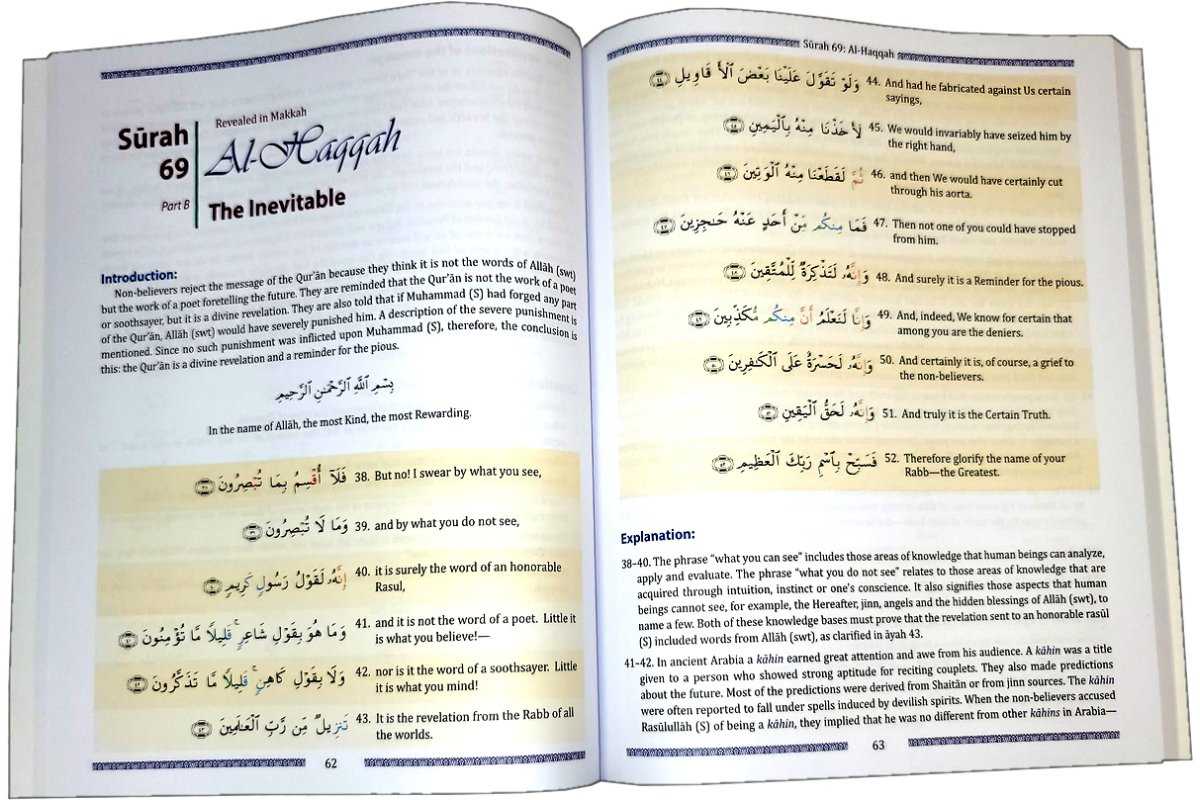 Sūrah
69
Part B
Revealed in Makkah
Al-Haqqah
The Inevitable
Introduction:
Non-believers reject the message of the Qur'ān because they think it is not the words of Allāh (swt)
but the work of a poet foretelling the future. They are reminded that the Qur'ān is not the work of a poet
or soothsayer, but it is a divine revelation. They are also told that if Muhammad (S) had forged any part
of the Qur'ān, Allāh (swt) would have severely punished him. A description of the severe punishment is
mentioned. Since no such punishment was inflicted upon Muhammad (S), therefore, the conclusion is
this: the Qur'ān is a divine revelation and a reminder for the pious.
بِسْمِ ٱللَّهِ ٱلرَّحْمَٰنِ ٱلرَّحِيمِ
In the name of Allāh, the most Kind, the most Rewarding.
فَلَآ أُقْسِمُ بِمَا تُبْصِرُونَ 38. But no! I swear by what you see,
وَمَا لَا تُبْصِرُونَ 39. and by what you do not see,
إِنَّهُۥ لَقَوْلُ رَسُولٍ كَرِيمٍ 40. it is surely the word of an honorable
Rasul,
وَمَا هُوَ بِقَوْلِ شَاعِرٍ ۚ قَلِيلًا مَّا تُؤْمِنُونَ 41. and it is not the word of a poet. Little it
is what you believe!—
وَلَا بِقَوْلِ كَاهِنٍ ۚ قَلِيلًا مَّا تَذَكَّرُونَ 42. nor is it the word of a soothsayer. Little
it is what you mind!
تَنزِيلٌ مِّن رَّبِّ ٱلْعَٰلَمِينَ 43. It is the revelation from the Rabb of all
the worlds.
62
Sūrah 69: Al-Haqqah
وَلَوْ تَقَوَّلَ عَلَيْنَا بَعْضَ ٱلْأَقَاوِيلِ 44. And had he fabricated against Us certain
sayings,
لَأَخَذْنَا مِنْهُ بِٱلْيَمِينِ 45. We would invariably have seized him by
the right hand,
ثُمَّ لَقَطَعْنَا مِنْهُ ٱلْوَتِينَ 46. and then We would have certainly cut
through his aorta.
فَمَا مِنكُم مِّنْ أَحَدٍ عَنْهُ حَٰجِزِينَ 47. Then not one of you could have stopped
from him.
وَإِنَّهُۥ لَتَذْكِرَةٌ لِّلْمُتَّقِينَ 48. And surely it is a Reminder for the pious.
وَإِنَّا لَنَعْلَمُ أَنَّ مِنكُم مُّكَذِّبِينَ 49. And, indeed, We know for certain that
among you are the deniers.
وَإِنَّهُۥ لَحَسْرَةٌ عَلَى ٱلْكَٰفِرِينَ 50. And certainly it is, of course, a grief to
the non-believers.
وَإِنَّهُۥ لَحَقُّ ٱلْيَقِينِ 51. And truly it is the Certain Truth.
فَسَبِّحْ بِٱسْمِ رَبِّكَ ٱلْعَظِيمِ 52. Therefore glorify the name of your
Rabb—the Greatest.
Explanation:
38–40. The phrase "what you can see" includes those areas of knowledge that human beings can analyze,
apply and evaluate. The phrase "what you do not see" relates to those areas of knowledge that are
acquired through intuition, instinct or one's conscience. It also signifies those aspects that human
beings cannot see, for example, the Hereafter, jinn, angels and the hidden blessings of Allāh (swt), to
name a few. Both of these knowledge bases must prove that the revelation sent to an honorable rasūl
(S) included words from Allāh (swt), as clarified in āyah 43.
41–42. In ancient Arabia a kāhin earned great attention and awe from his audience. A kāhin was a title
given to a person who showed strong aptitude for reciting couplets. They also made predictions
about the future. Most of the predictions were derived from Shaitān or from jinn sources. The kāhin
were often reported to fall under spells induced by devilish spirits. When the non-believers accused
Rasūlullāh (S) of being a kāhin, they implied that he was no different from other kāhins in Arabia—
63